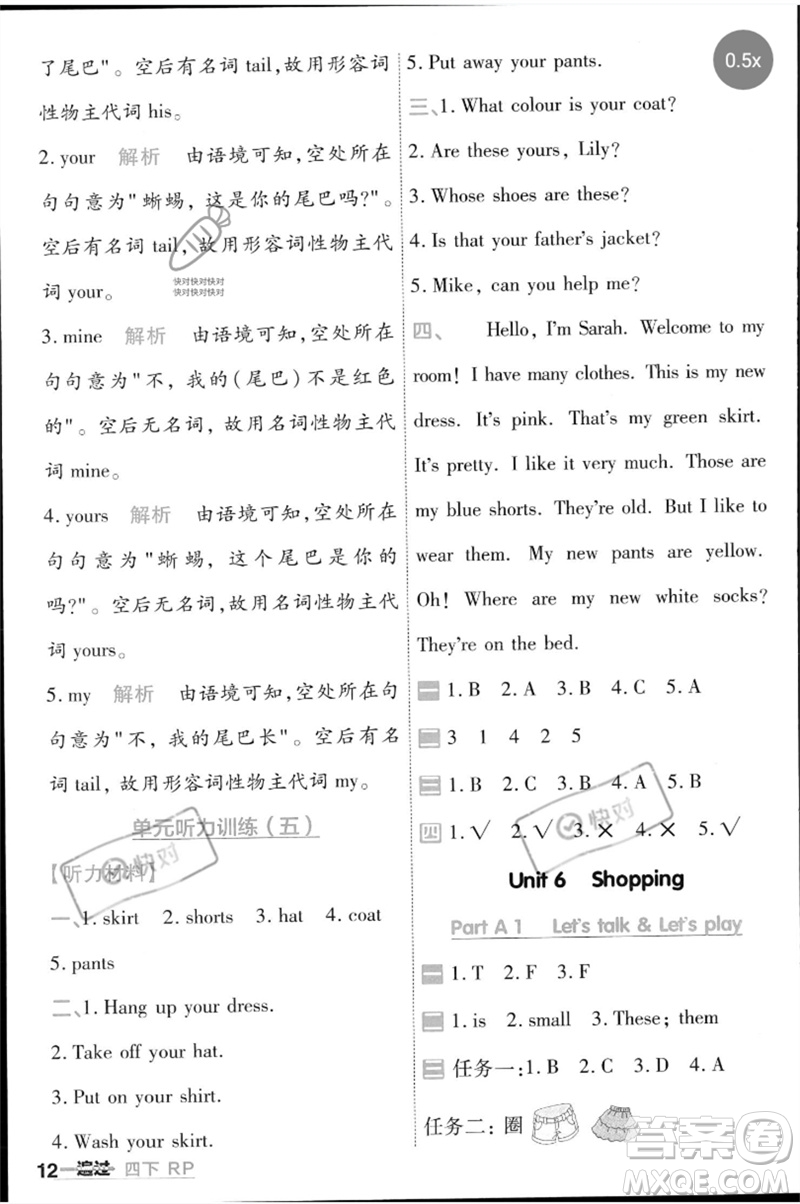 了尾巴"。空后有名词 tail,故用形容词
性物主代词 his。
2. your 解析 由语境可知,空处所在
句句意为"蜥蜴，这是你的尾巴吗?"。
空后有名词 tail,故用形容词性物主代
词 your。
快对快对快对快对
快对快对快对快对
3. mine 解析 由语境可知,空处所在
句句意为"不，我的(尾巴)不是红色
的"。空后无名词,故用名词性物主代
词 mine。
4. yours 解析 由语境可知,空处所在
句句意为"蜥蜴，这个尾巴是你的
吗?"。空后无名词,故用名词性物主代
词 yours。
5. my 解析 由语境可知,空处所在句
句意为"不，我的尾巴长"。空后有名
词 tail,故用形容词性物主代词 my。
单元听力训练(五)
【听力材料】
一、1. skirt 2. shorts 3. hat 4. coat
5. pants
二、1. Hang up your dress.
2. Take off your hat.
3. Put on your shirt.
4. Wash your skirt.
12 一遍过 四下 RP
5. Put away your pants.
三、1. What colour is your coat?
2. Are these yours, Lily?
3. Whose shoes are these?
4. Is that your father's jacket?
5. Mike, can you help me?
四、 Hello, I'm Sarah. Welcome to my
room! I have many clothes. This is my new
dress. It's pink. That's my green skirt.
It's pretty. I like it very much. Those are
my blue shorts. They're old. But I like to
wear them. My new pants are yellow.
Oh! Where are my new white socks?
They're on the bed.
一 1. B 2. A 3. B 4. C 5. A
二 3 1 4 2 5
三 1. B 2. C 3. B 4. A 5. B
四 1. √ 2. √ 3. × 4. × 5. √
Unit 6 Shopping
Part A 1 Let's talk & Let's play
一 1. T 2. F 3. F
二 1. is 2. small 3. These; them
三 任务一:1. B 2. C 3. D 4. A
任务二:圈
0.5x
快对
快对
答案圈
MXQE.COM